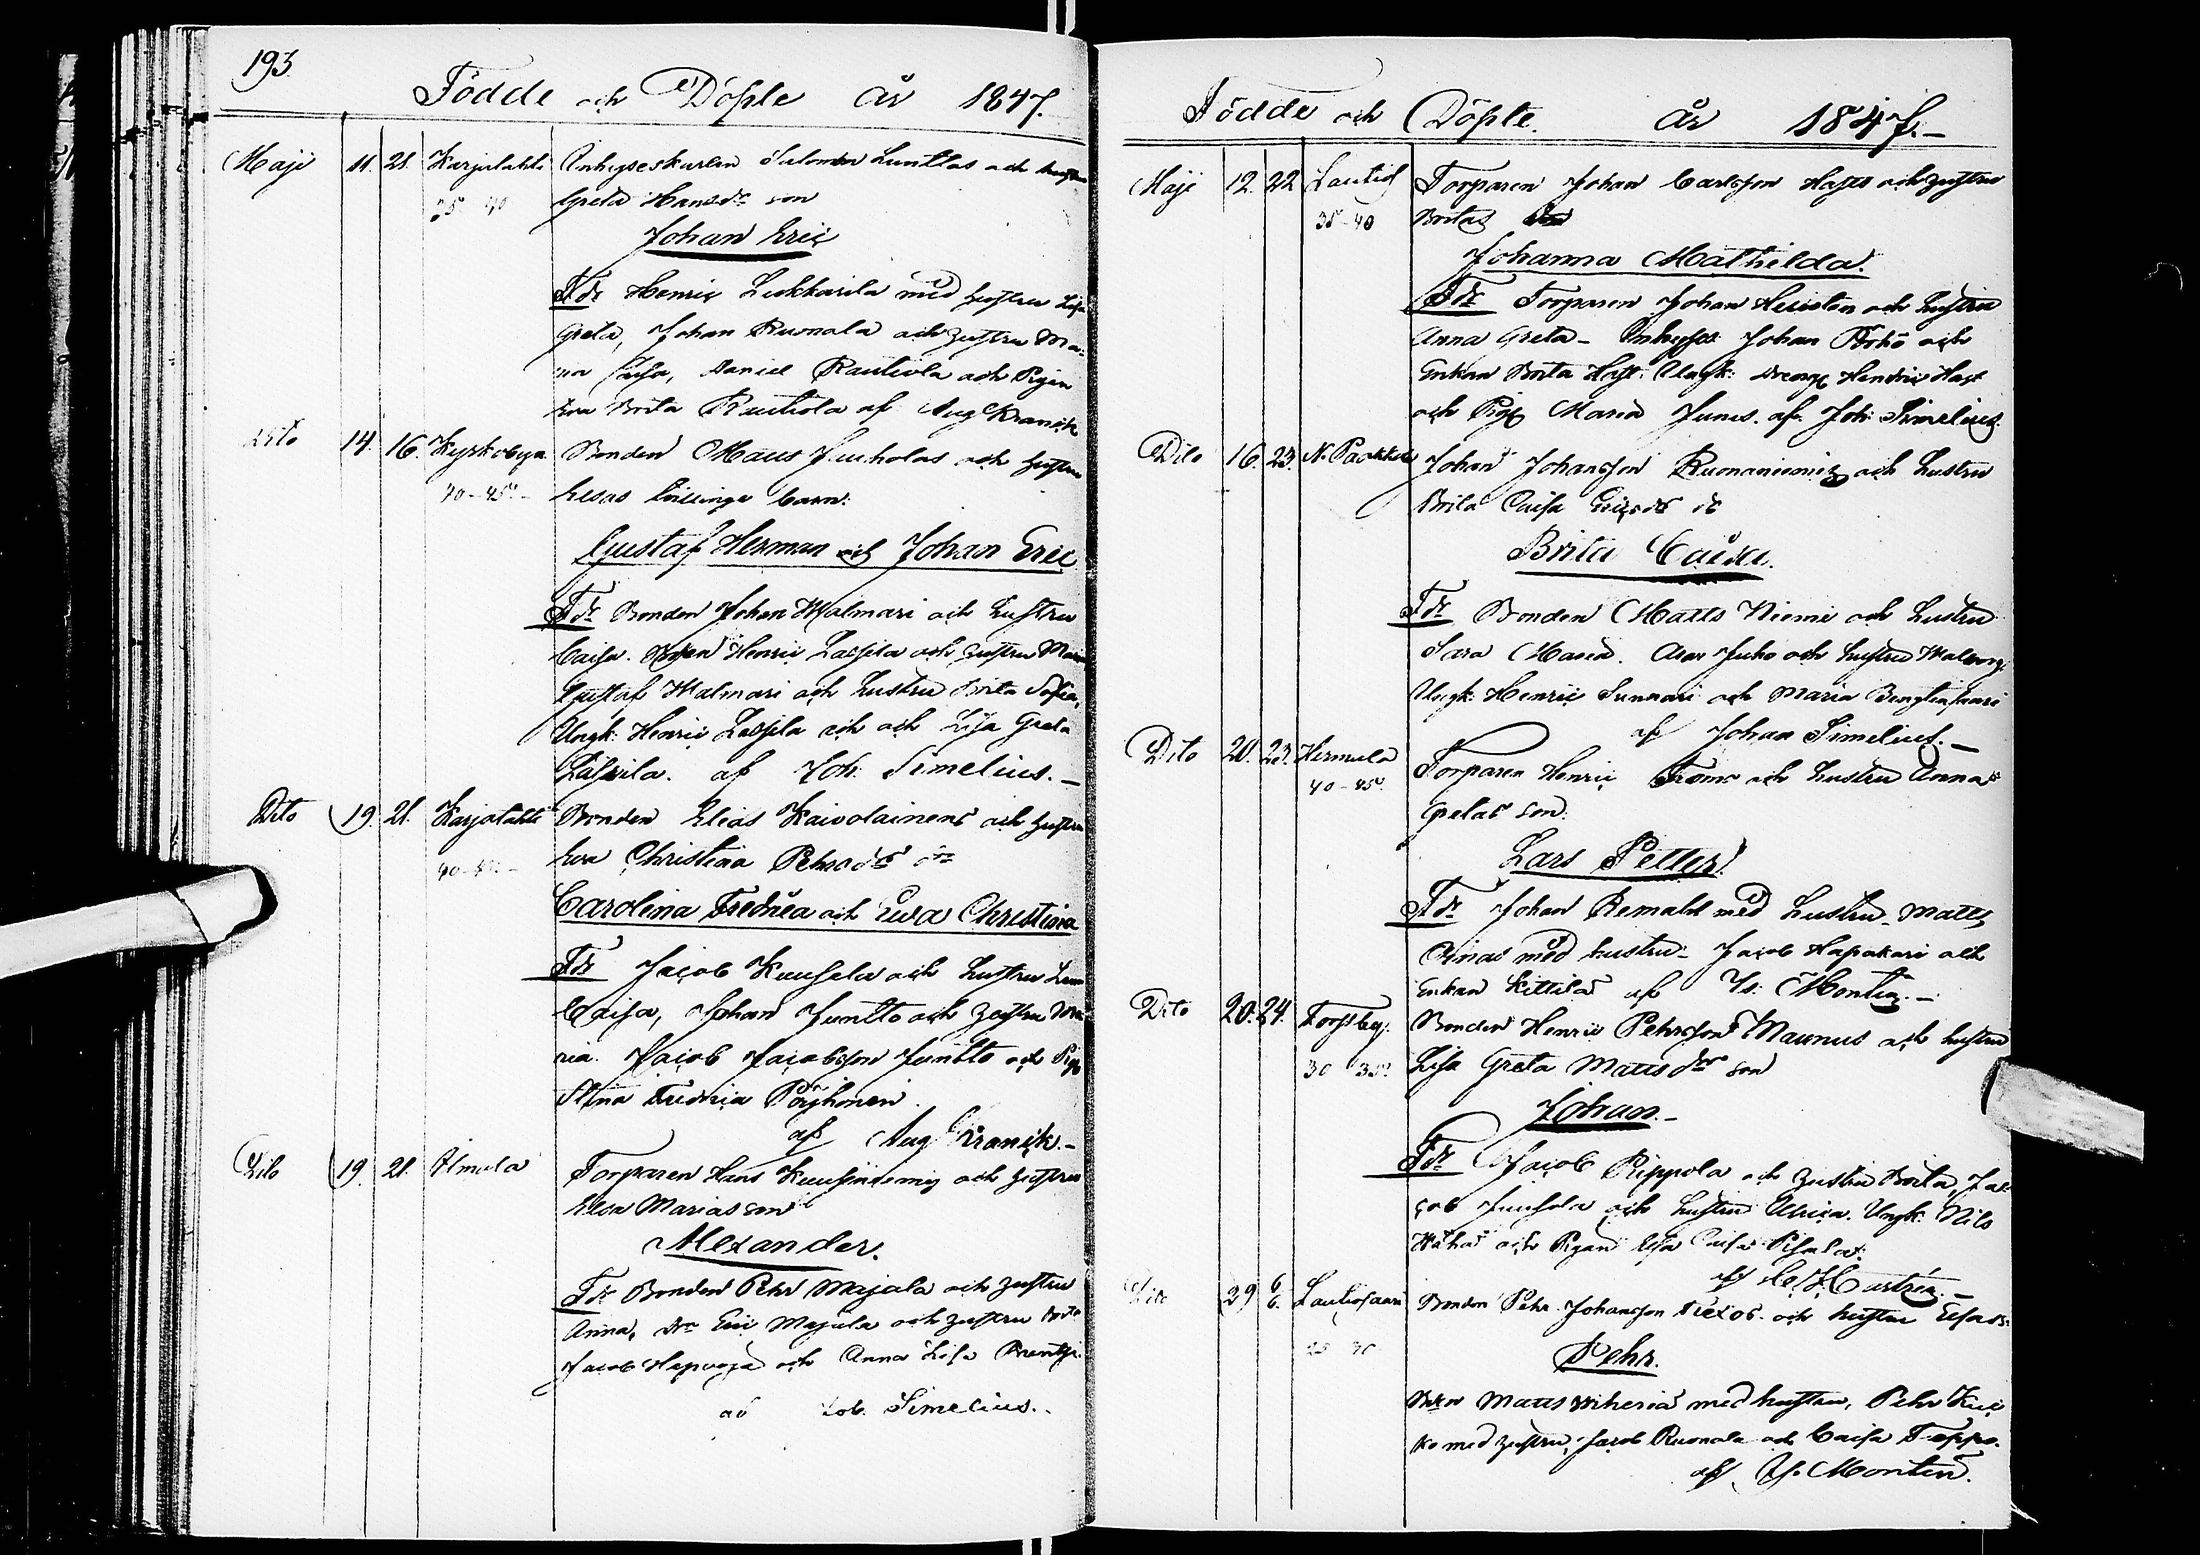 193.
Födde och Döpte År 1847.
Maji 11. 21. Karjalahti Inhyseskarlen Salomon Junttos och hustru
35 40 Greta Hansdr son
Johan Eric
Fdr Henric Leskkarila med hustru Lisa
Greta, Johan Ruonala och hustru Ma-
ria Caisa, Daniel Rautiola och Pigan
Eva Brita Rautiola af Aug Kranck
Dito 14. 16. Kyrkobyn Bonden Maus Juuholas och hustru
40-45 Elsas Tvillinge barn:
Gustaf Herman och Johan Eric
Fdr Bonden Johan Malmari och hustru
Caisa. Henric Lassila och hustru Maria
Gustaf Malmari och hustru Brita Sofia,
Ungk: Henric Lassila och och Lisa Greta
Lassila. af Joh: Simelius.
Dito 19. 21. Karjalahti Bonden Elias Kaivolainens och hustru
40-45 Eva Christina Pehrsdrs
Carolina Fredrica och Eva Christina
Fdr Jacob Kuusela och hustru
Caisa, Johan Juntto och hustru Ma-
ria. Jacob Jacobsson Juntto och Pig
Stina Fredrica Pöyhönen.
af Aug Kranck.
Dito 19. 21. Ilmola Torparen Hans Kuusiniemis och hustru
Elsa Marias son
Alexander.
Fdr Bonden Pehr Majala och hustru
Anna, Dr Eric Majala och hustru Brita
Jacob Hepvoja och Anna Lisa
af Joh. Simelius.
Födde och Döpte. År 1847.
Maji 12. 22 Lautio Torparen Johan Carlsson Hasts och hustru
35-40 Britas
Johanna Mathilda.
Fdr Torparen Johan Heiston och hustru
Anna Greta. Inhyses Johan Pökö och
Enkan Brita Hast: Ungk: Hendric Hast
och Pig Maria Junes. af Joh: Simelius.
Dito 16. 23. N. Paakkola Johan Johansson Ruonaniemis och hustru
Brita Caisa Ericsdr dr
Brita Caisa.
Fdr Bonden Matts Niemi och hustru
Sara Maria. Juho och hustru Walborg
Ungk: Henric Sunnari och Maria
af Johan Simelius.
Dito 20. 23. Hermula Torparen Henric Fromo och hustru Anna
40-45 Gretas son:
Lars Petter.
Fdr Johan Remahl med hustru. Matts
Ainas med hustru. Jacob Hapakari och
Enkan Kittilä af Is: Montin.
Dito 20. 24. Torpby. Bonden Henric Pehrsson Maunus och hustru
30 35 Lisa Greta Mattsdrs son
Johan.
Fdr Jacob Rippola och hustru Brita, Ja-
cob Juusola och hustru Ulrica. Ungk: Nils
Hähä och Pigan Caisa
af Castrén.
Dito 29 6/6 Lautiosaari Bonden Pehr Johansson och hustru Elsas
25 30 Pehr.
Matts Wiheriä med hustru, Pehr Kuk-
ko med hustru; Jacob Ruonala och Caisa Teppo.
af Is. Montin.